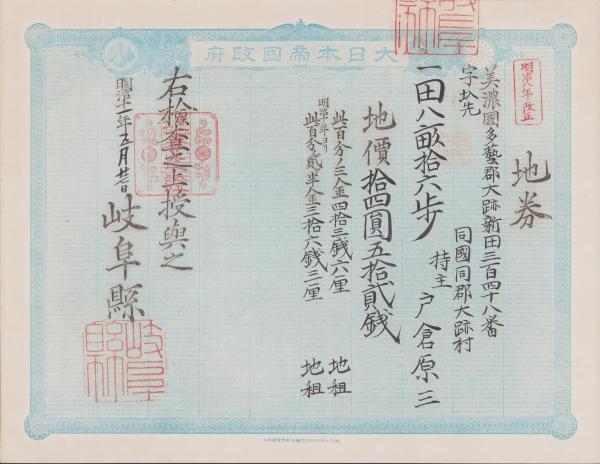 大日本帝國政府
明治八年改正
地券
美濃國多藝郡大跡新田三百四十八番
字圦先
同國同郡大跡村
一田八畝拾六歩
持主 戸倉原三
地價拾四圓五拾貳銭
此百分ノ三金四拾三銭六厘 地租
明治十年ヨリ
此百分ノ貳半金三拾六銭三厘 地租
右検査之上授與之
明治十一年五月廿日
岐阜縣